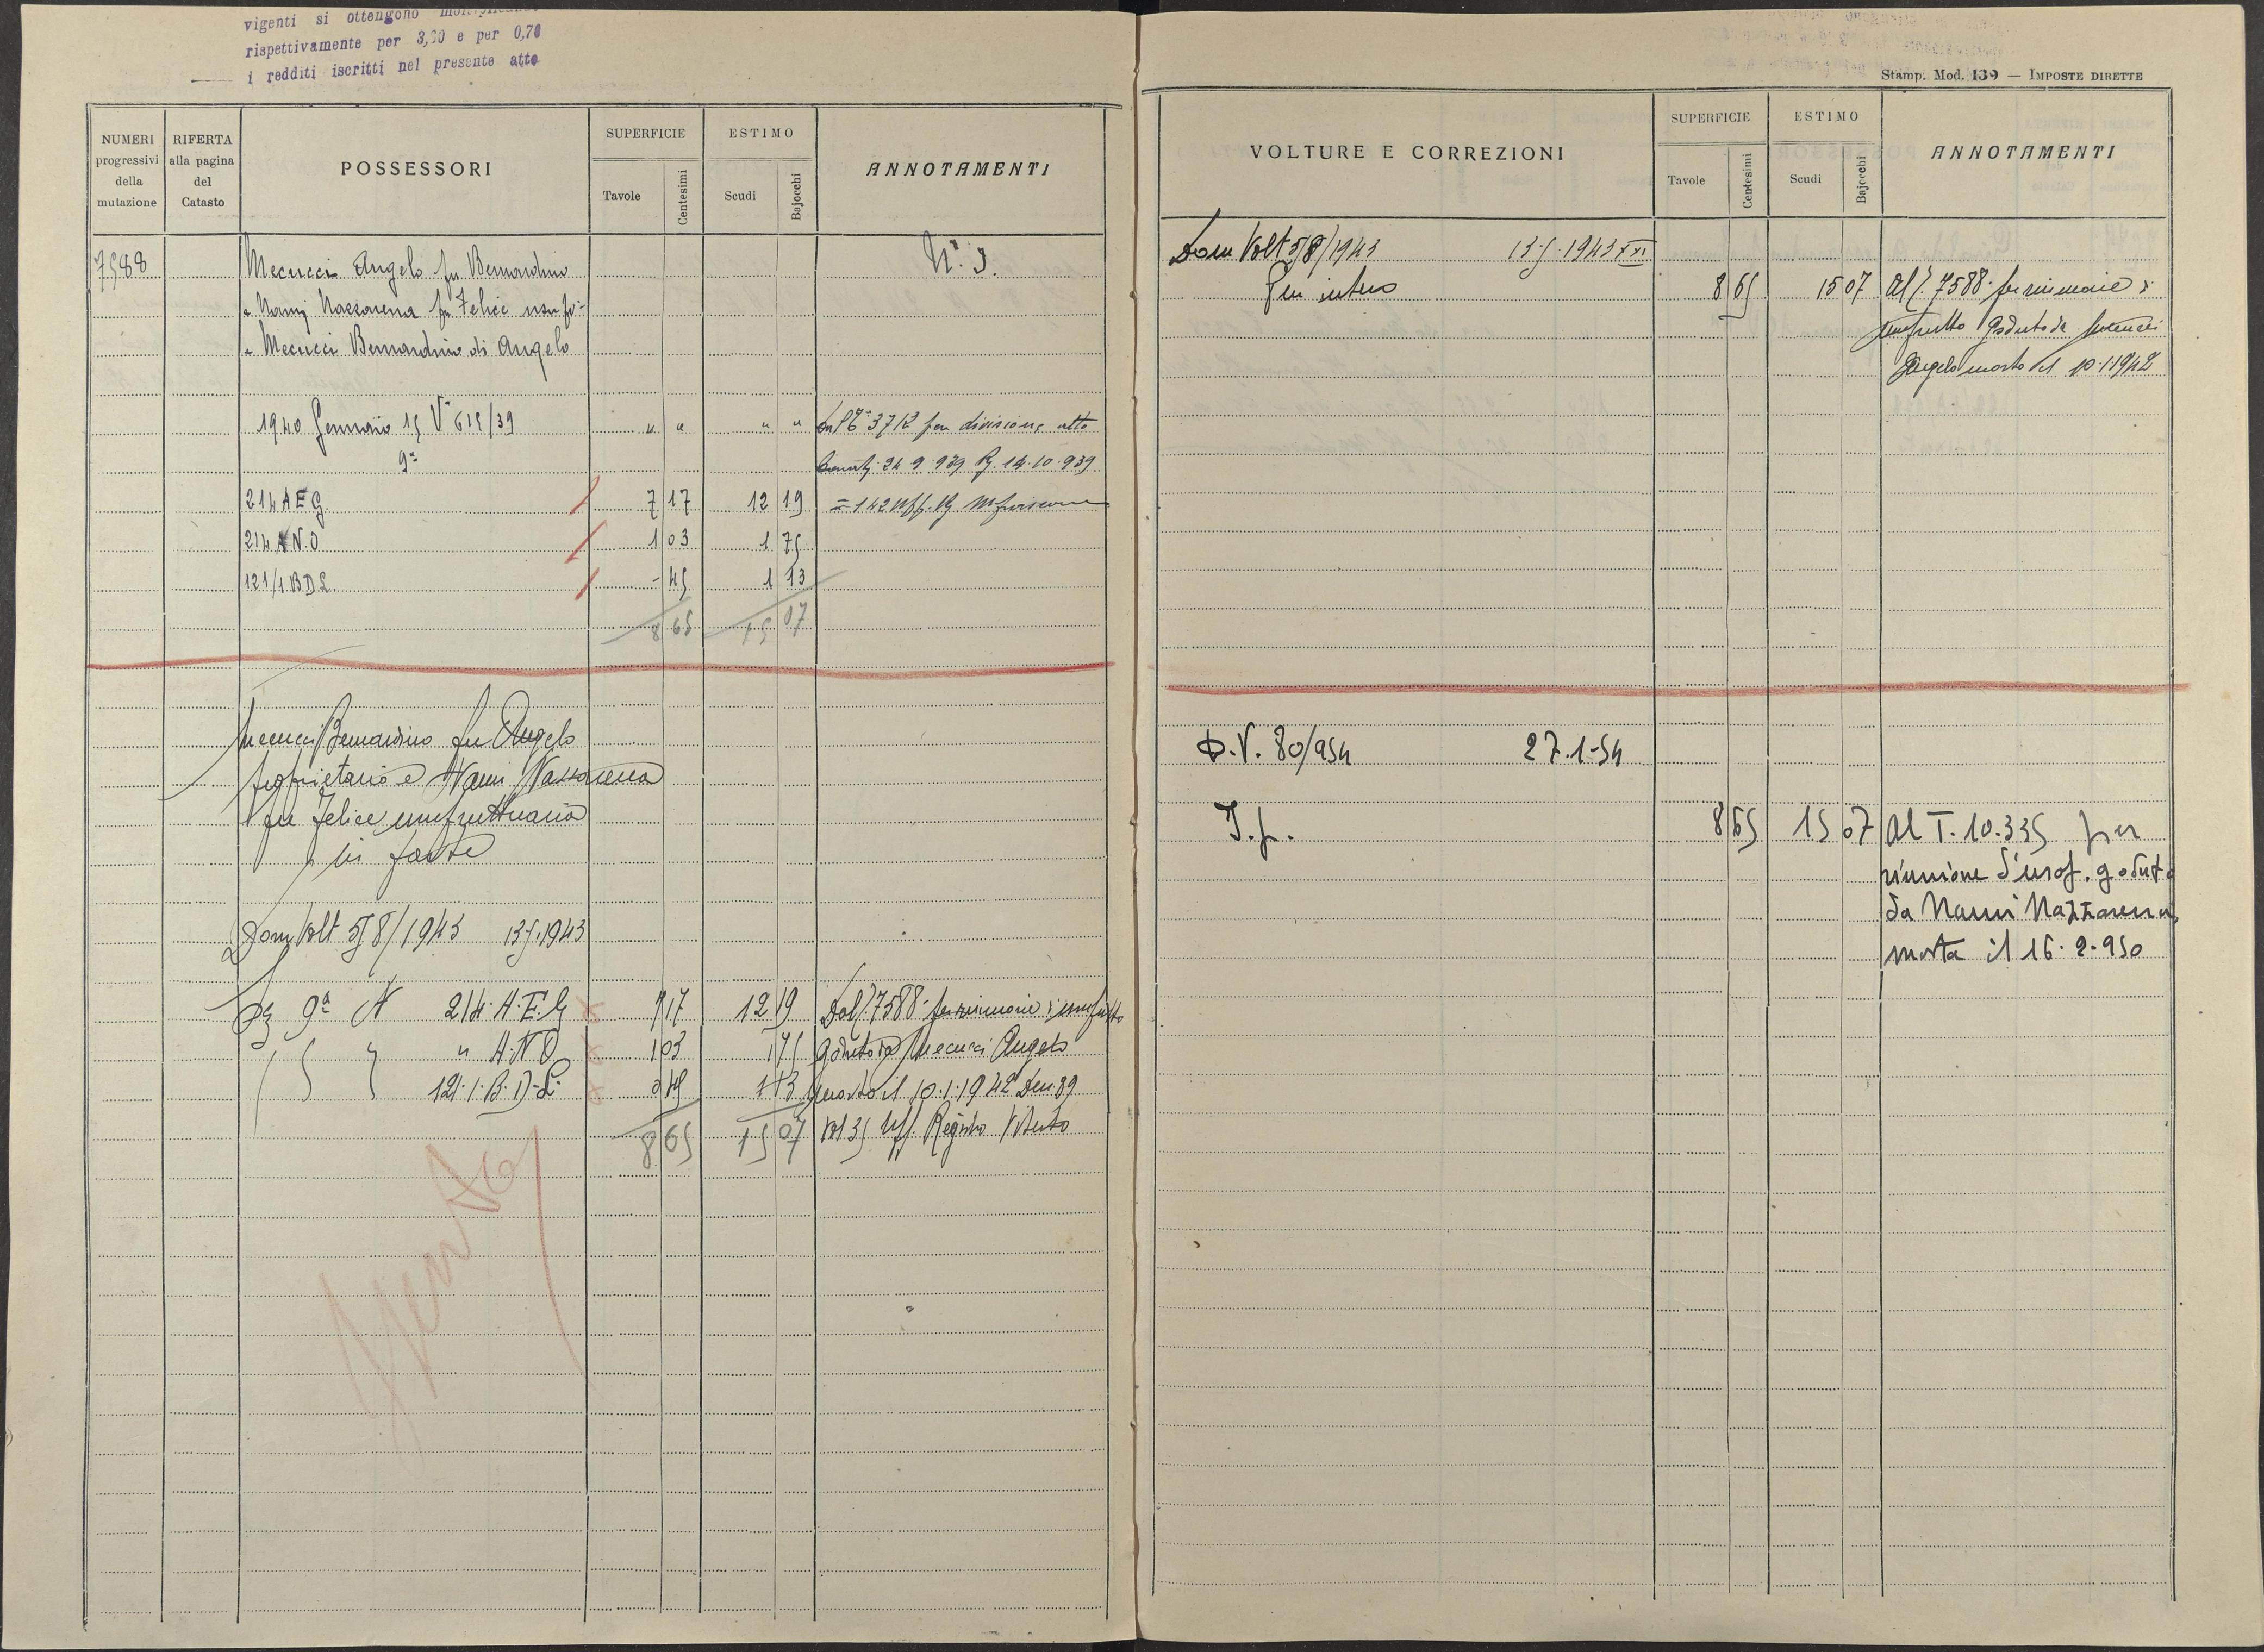 vigenti si ottengono
rispettivamente per 3,00 e per 0,70
i redditi iscritti nel presente atto
Stamp. Mod. 139 — IMPOSTE DIRETTE
NUMERI progressivi della mutazione
RIFERTA alla pagina del Catasto
POSSESSORI
SUPERFICIE
Tavole
Centesimi
ESTIMO
Scudi
Bajocchi
ANNOTAMENTI
7588
Mecucci Angelo fu Bernardino
" Nanni Nazzarena fu Felice
" Mecucci Bernardino di Angelo
N. 3.
1940 Gennaio 15 V 615/39 " " " " 3712 per divisione atto
9a 24.9.939 14.10.939
214 A E G 7 17 12 19 = 142 Uff.
214 A N.O 1 03 1 75
121/1 B D L. - 45 1 13
8 65 15 07
Mecucci Bernardino fu Angelo
proprietario e Nanni Nazzarena
fu Felice usufruttuaria
in parte
Dom Volt 58/1943 13.5.1943
9a N 214. A. E. G 7 17 12 19 Dal 7588 per riunione di usufrutto
" A. N O 1 03 1 75 goduto da Mecucci Angelo
121. 1. B. D. L. 0 45 1 13 morto il 10.1.1942 Den. 89
8 65 15 07 Vol 35 Uff. Registro Viterbo
VOLTURE E CORREZIONI
SUPERFICIE
Tavole
Centesimi
ESTIMO
Scudi
Bajocchi
ANNOTAMENTI
Dom Volt 58/1943 13.5.1943 XXI
Per intero 8 65 15 07 Al 7588 per riunione di
usufrutto goduto da Mecucci
Angelo morto il 10.1.1942
D.V. 80/954 27.1-54
I. p. 8 65 15 07 Al T. 10.335 per
riunione d'usof. goduto
da Nanni Nazzarena,
morta il 16.2.950